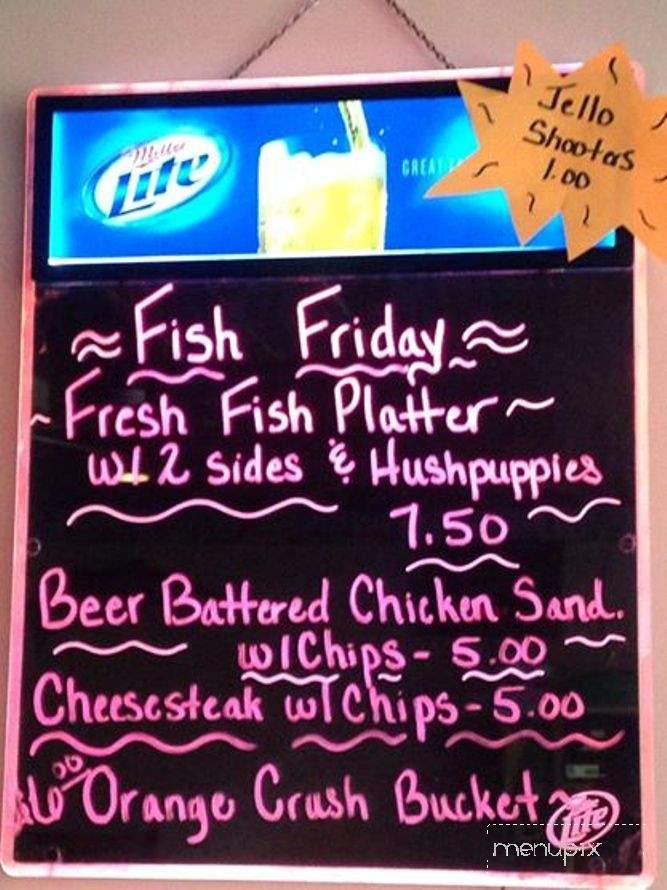 Miller
Lite
GREAT
Jello
Shooters
1.00
≈ Fish Friday ≈
~ Fresh Fish Platter ~
w/ 2 sides & Hushpuppies
7.50
Beer Battered Chicken Sand.
w/Chips - 5.00
Cheesesteak w/Chips - 5.00
6.00 Orange Crush Bucket ~
Lite
menupix